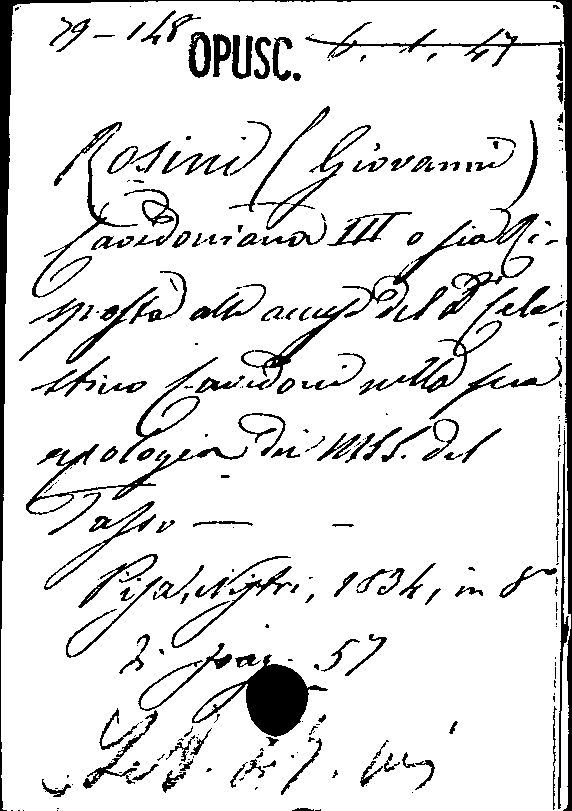 79-148 OPUSC. 6. 1. 47
Rosini (Giovanni)
Cavedoniana III o sia Ri-
sposta alle accuse del D.r Cele-
stino Cavedoni nella sua
apologia dei MSS. del
Tasso — —
Pisa, Nistri, 1834, in 8°
di pag. 57
Lett.